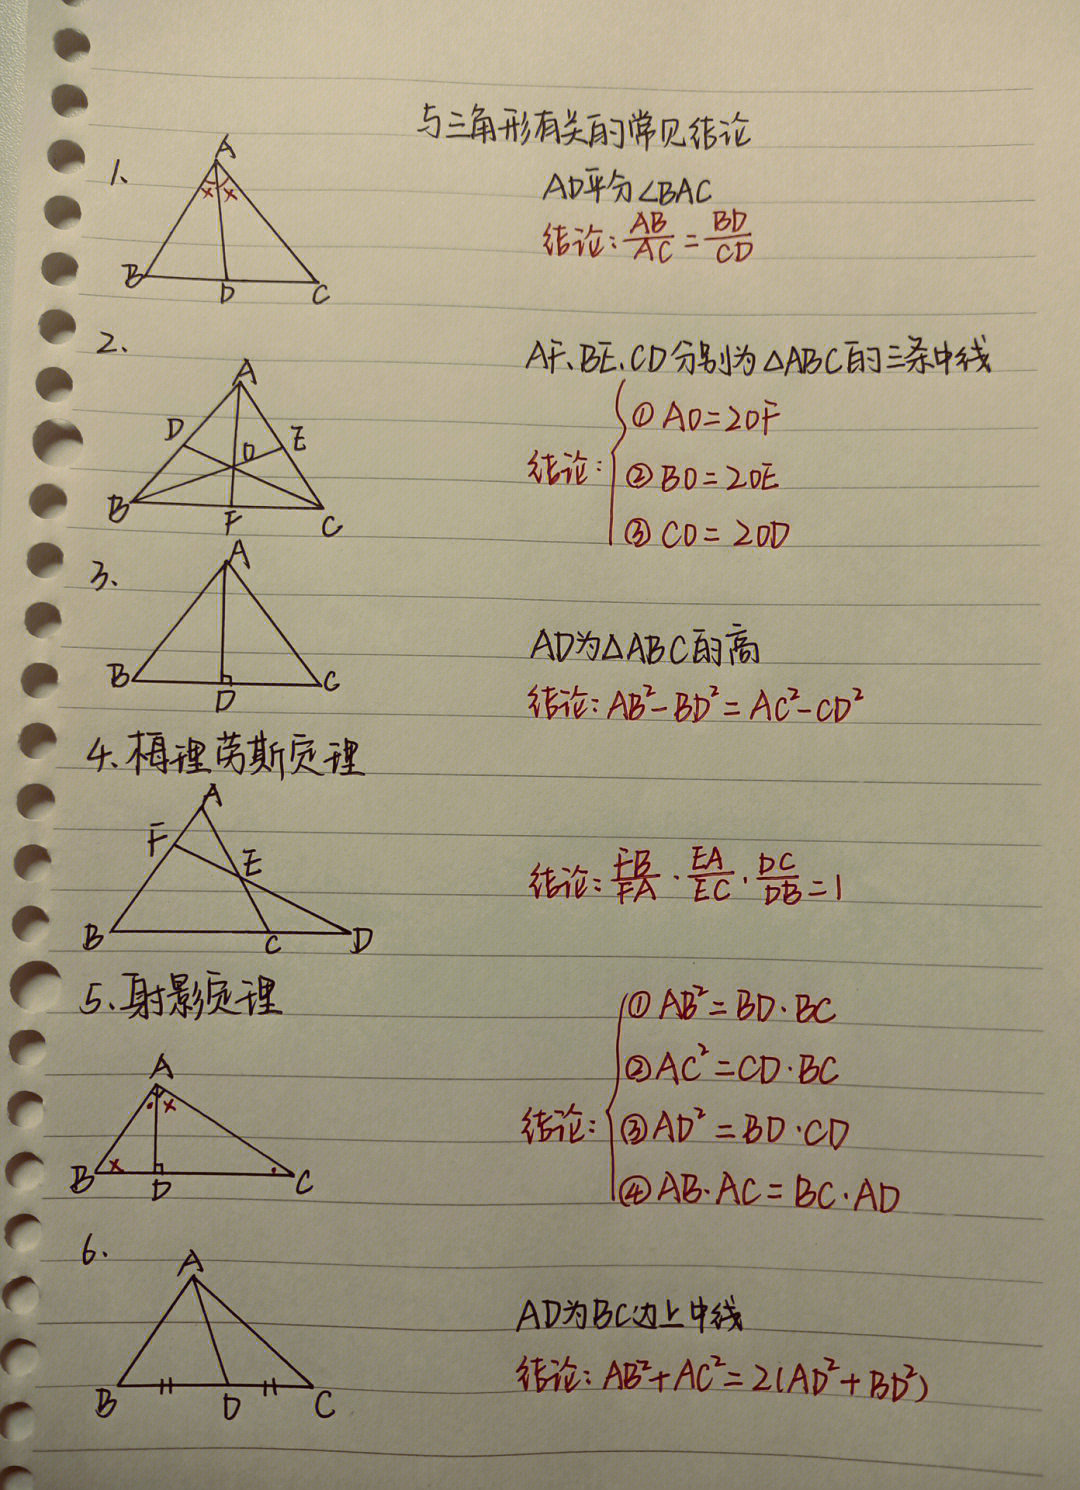 与三角形有关的常见结论
1.
A
× ×
B D C
AD平分∠BAC
结论: AB/AC = BD/CD
2.
A
D E
O
B F C
AF、BE、CD分别为△ABC的三条中线
结论:
① AO=2OF
② BO=2OE
③ CO=2OD
3.
A
B D C
AD为△ABC的高
结论: AB²-BD²=AC²-CD²
4、梅理劳斯定理
A
F
E
B C D
结论: FB/FA · EA/EC · DC/DB = 1
5、射影定理
A
• ×
B × • C
D
结论:
① AB²=BD·BC
② AC²=CD·BC
③ AD²=BD·CD
④ AB·AC=BC·AD
6.
A
B D C
AD为BC边上中线
结论: AB²+AC²=2(AD²+BD²)